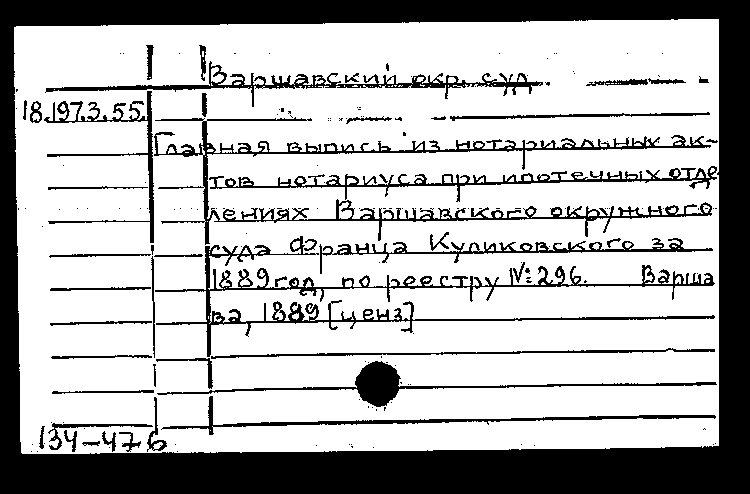 Варшавский окр. суд
18.197.3.55.
Главная выпись из нотариальных ак-
тов нотариуса при ипотечных отде
лениях Варшавского окружного
суда Франца Куликовского за
1889 год, по реестру №: 296. Варша
ва, 1889 [ценз.]
134-476